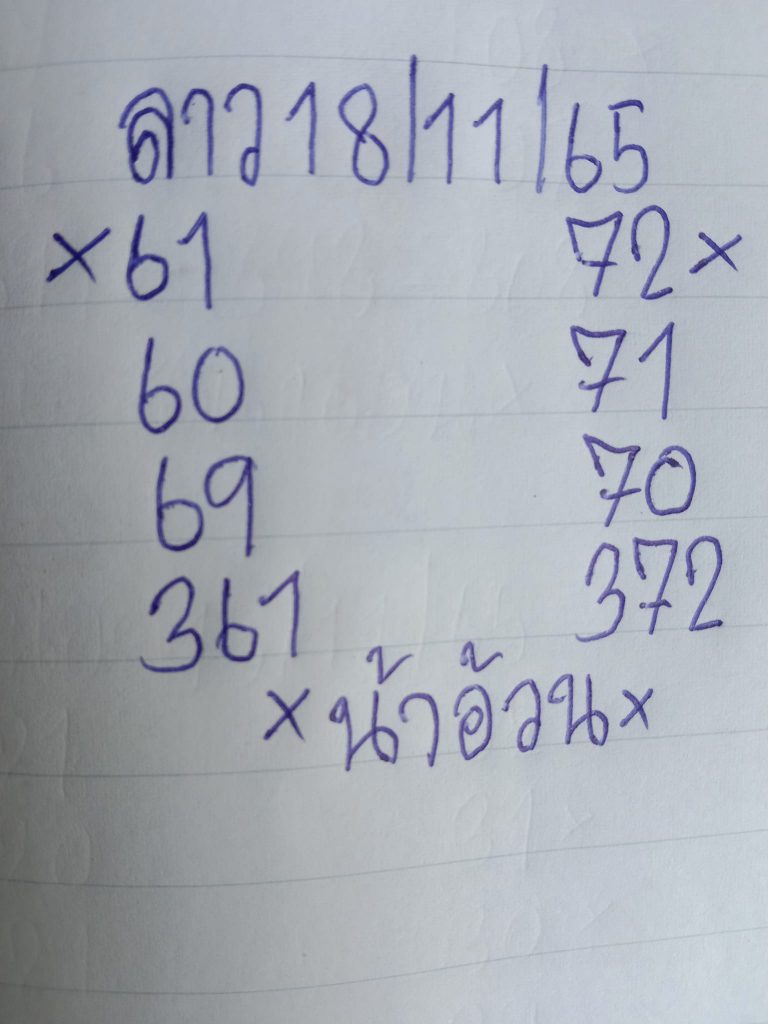 ลาว 18/11/65
×61 72×
60 71
69 70
361 372
×น้าอ้วน×